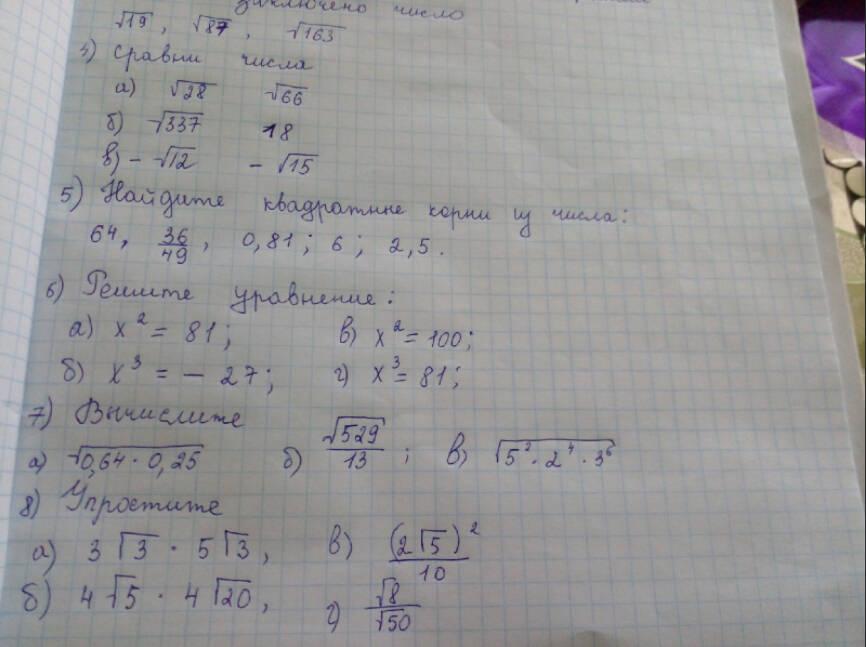 заключено число
√19, √87, √163
4) Сравни числа
а) √28 √66
б) √337 18
в) - √12 - √15
5) Найдите квадратные корни из числа:
64, 36/49, 0,81; 6; 2,5.
6) Решите уравнение:
а) x² = 81; в) x² = 100;
б) x³ = - 27; г) x³ = 81;
7) Вычислите
а) √0,64 · 0,25 б) √529/13; в) √5² · 2⁴ · 3⁶
8) Упростите
а) 3√3 · 5√3, в) (2√5)²/10
б) 4√5 · 4√20, г) √8/√50